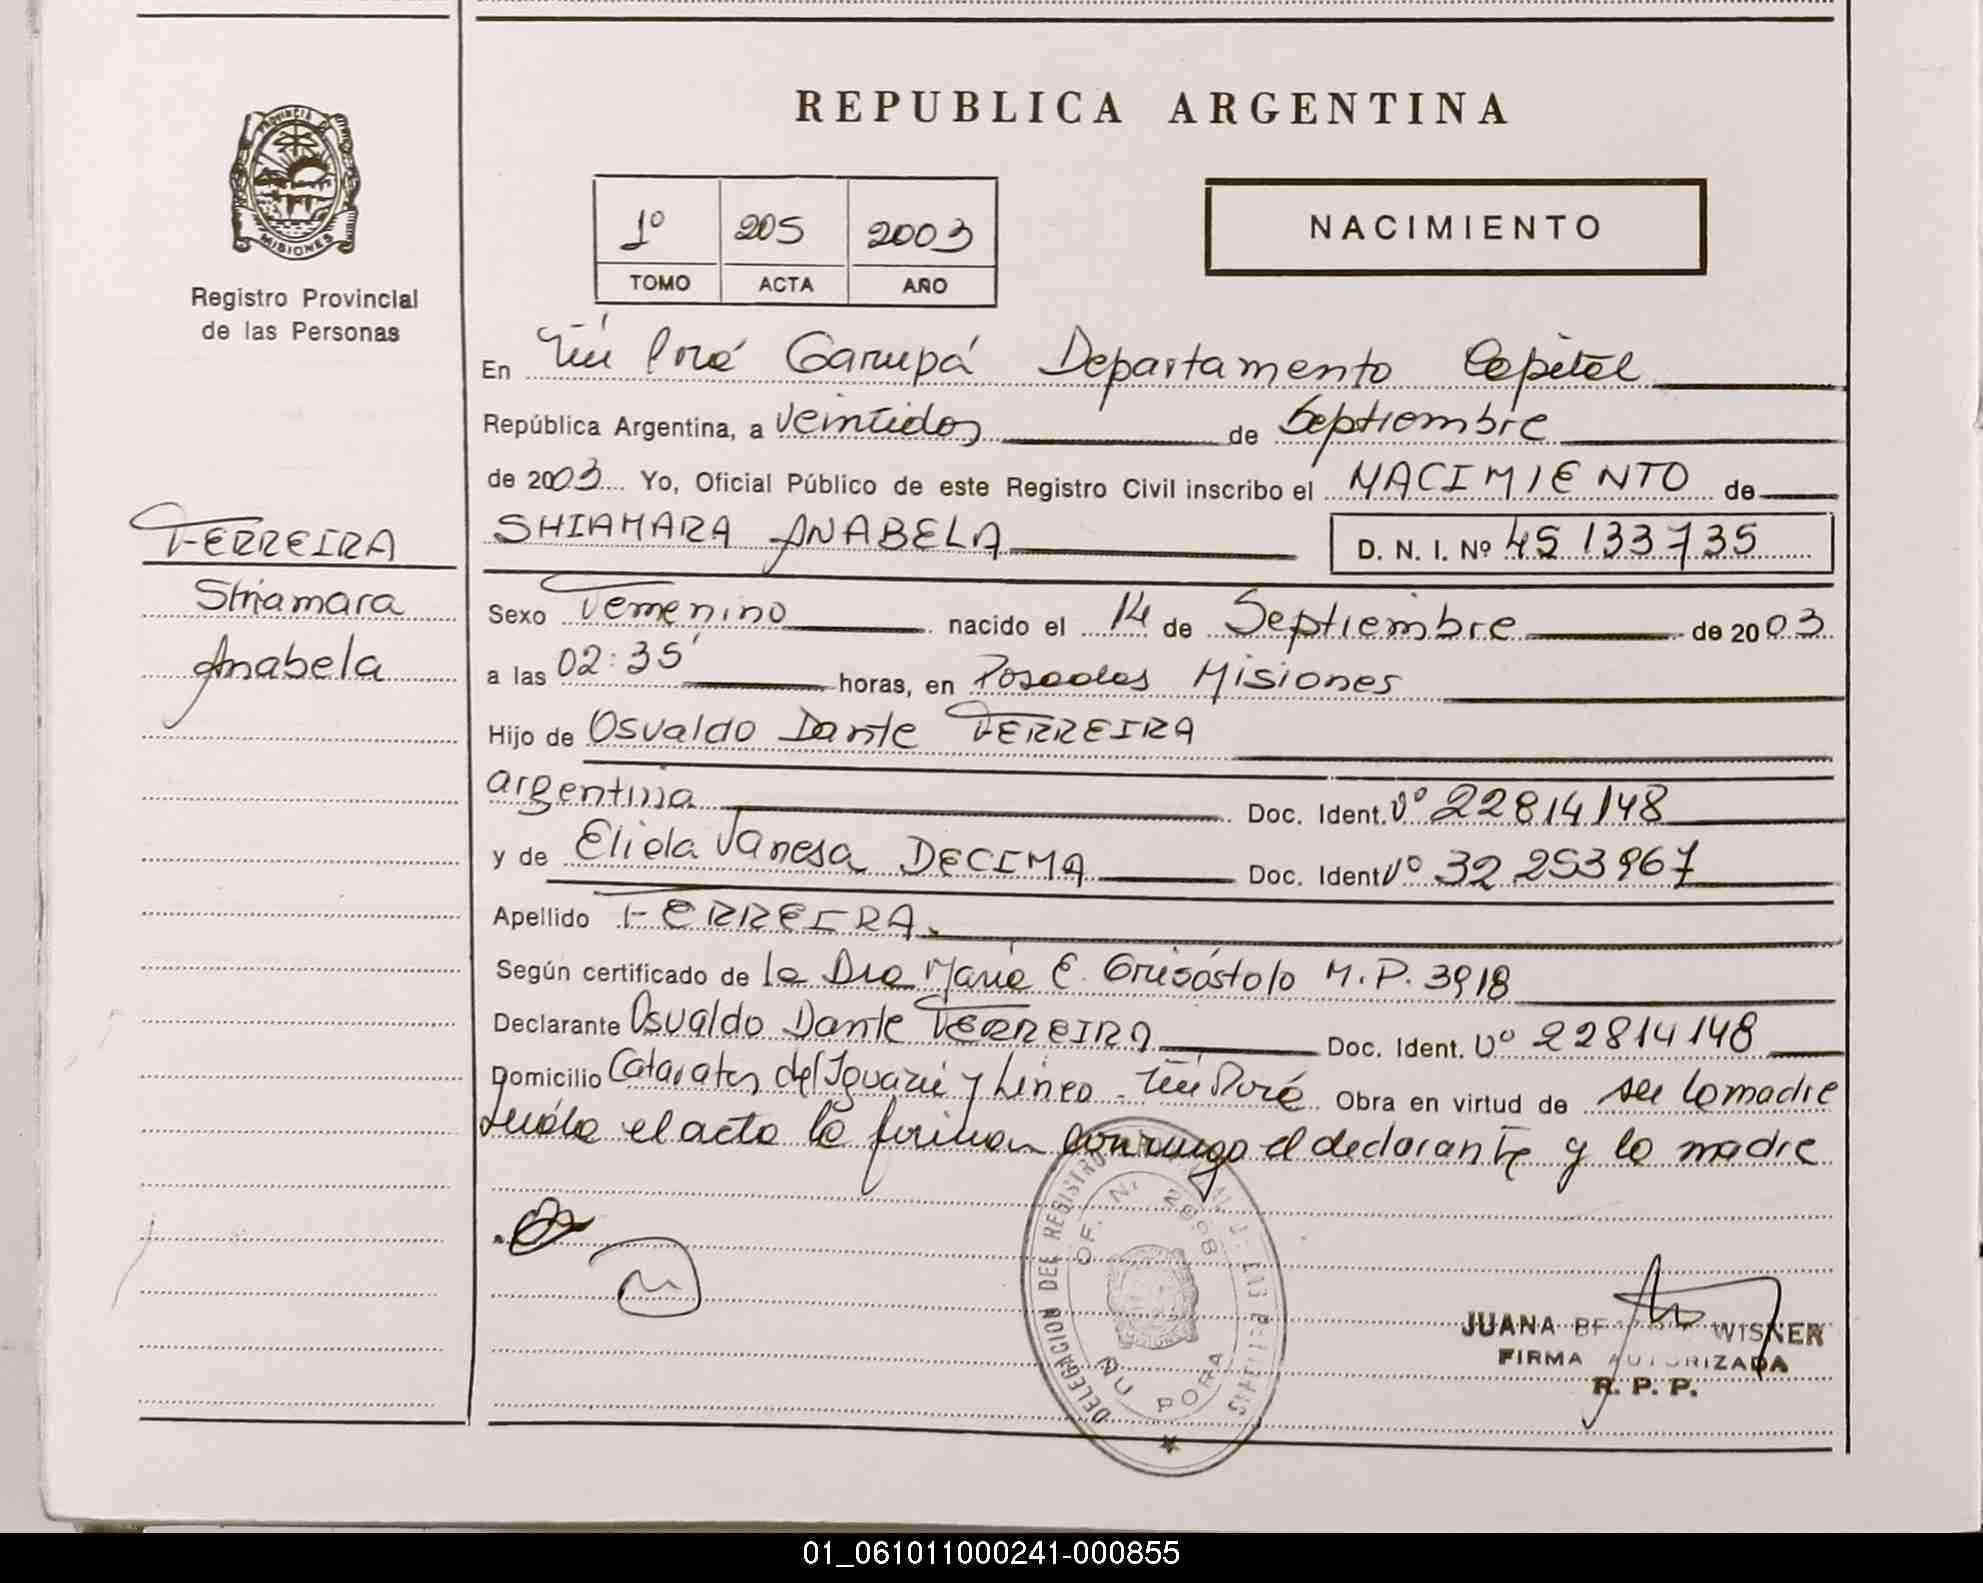 REPUBLICA ARGENTINA
PROVINCIA DE
MISIONES
Registro Provincial
de las Personas
1º 205 2003
TOMO ACTA AÑO
NACIMIENTO
En Ñu Porá Garupá Departamento Capital
República Argentina, a Veintidos de Septiembre
de 2003 Yo, Oficial Público de este Registro Civil inscribo el NACIMIENTO de
SHIAMARA ANABELA D. N. I. Nº 45 133 735
FERREIRA
Shiamara
Anabela
Sexo Femenino nacido el 14 de Septiembre de 2003
a las 02:35' horas, en Posadas Misiones
Hijo de Osvaldo Dante FERREIRA
argentina Doc. Ident. Nº 22814148
y de Elida Vanesa DECIMA Doc. Ident Nº 32 253967
Apellido FERREIRA.
Según certificado de la Dra María E. Grisóstolo M.P. 3918
Declarante Osvaldo Dante FERREIRA Doc. Ident. Nº 22814148
Domicilio Cataratas del Iguazú y Lineo - Ñu Porá Obra en virtud de ser la madre
el acta la firman conmigo el declarante y la madre
DELEGACION DEL REGISTRO DE LAS PERSONAS
OF. N.
ÑU PORA
JUANA WISNER
FIRMA AUTORIZADA
R. P. P.
01_061011000241-000855